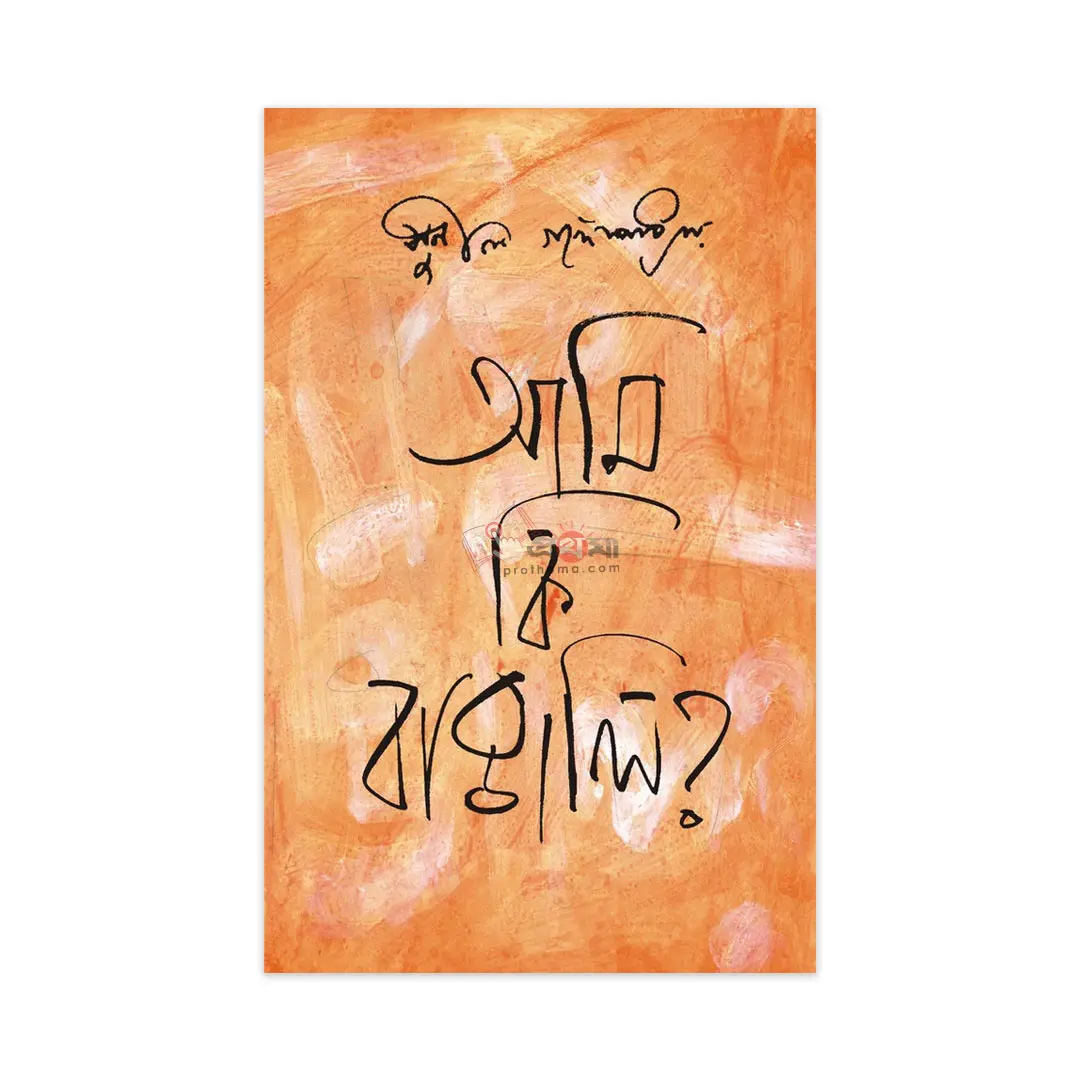 সুনীল গঙ্গোপাধ্যায়
আমি
কি
বাঙালি?
প্রথমা
prothoma.com